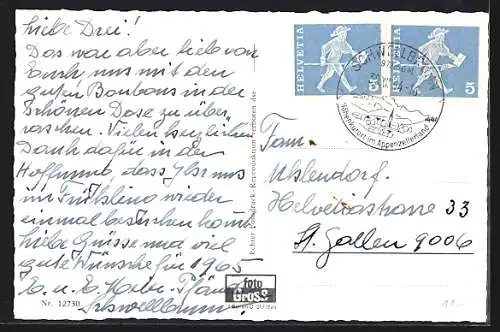 Liebe Drei!
Das war aber lieb von
Euch uns mit den
guten Bonbons in der
schönen Dose zu über-
raschen. Vielen herzlichen
Dank dafür in der
Hoffnung, dass Ihr uns
im Frühling wieder
einmal besuchen kommt
Liebe Grüsse und viel
gute Wünsche für 1965
E. u. E.
Schwellbrunn
Nr. 12730
foto
Gross
HELVETIA 5
HELVETIA 5
SCHWELLBRUNN
Höhenkurort im Appenzellerland
Fam.
Uhlendorf.
Helvetiastrasse 33
St. Gallen 9006